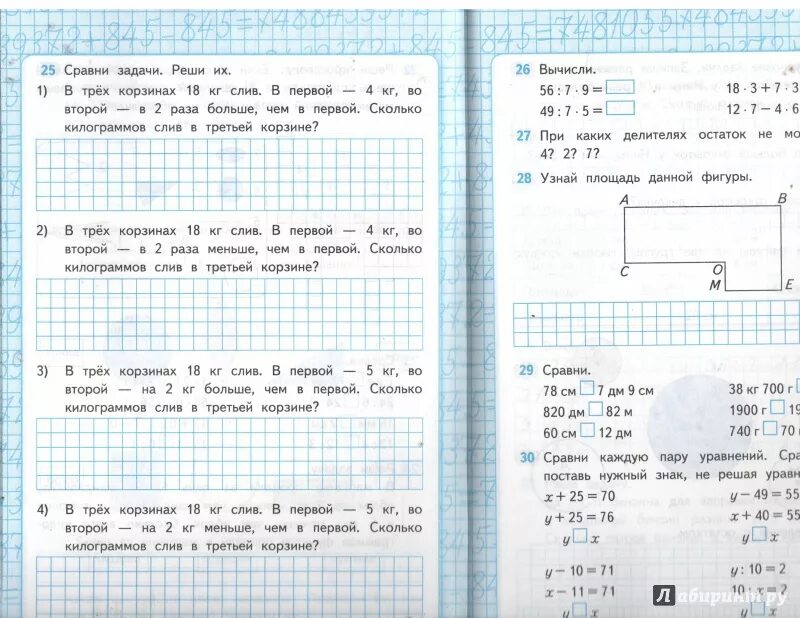 25 Сравни задачи. Реши их.
1) В трёх корзинах 18 кг слив. В первой — 4 кг, во
второй — в 2 раза больше, чем в первой. Сколько
килограммов слив в третьей корзине?
2) В трёх корзинах 18 кг слив. В первой — 4 кг, во
второй — в 2 раза меньше, чем в первой. Сколько
килограммов слив в третьей корзине?
3) В трёх корзинах 18 кг слив. В первой — 5 кг, во
второй — на 2 кг больше, чем в первой. Сколько
килограммов слив в третьей корзине?
4) В трёх корзинах 18 кг слив. В первой — 5 кг, во
второй — на 2 кг меньше, чем в первой. Сколько
килограммов слив в третьей корзине?
26 Вычисли.
56 : 7 · 9 = 18 · 3 + 7 · 3
49 : 7 · 5 = 12 · 7 − 4 · 6
27 При каких делителях остаток не мо
4? 2? 7?
28 Узнай площадь данной фигуры.
A B
C O
M E
29 Сравни.
78 см 7 дм 9 см 38 кг 700 г
820 дм 82 м 1900 г
60 см 12 дм 740 г 70
30 Сравни каждую пару уравнений. Сра
поставь нужный знак, не решая уравн
x + 25 = 70 y − 49 = 55
y + 25 = 76 x + 40 = 55
y x y x
y − 10 = 71 y : 10 = 2
x − 11 = 71 10 : x = 2
y x y x
Лабиринт.ру